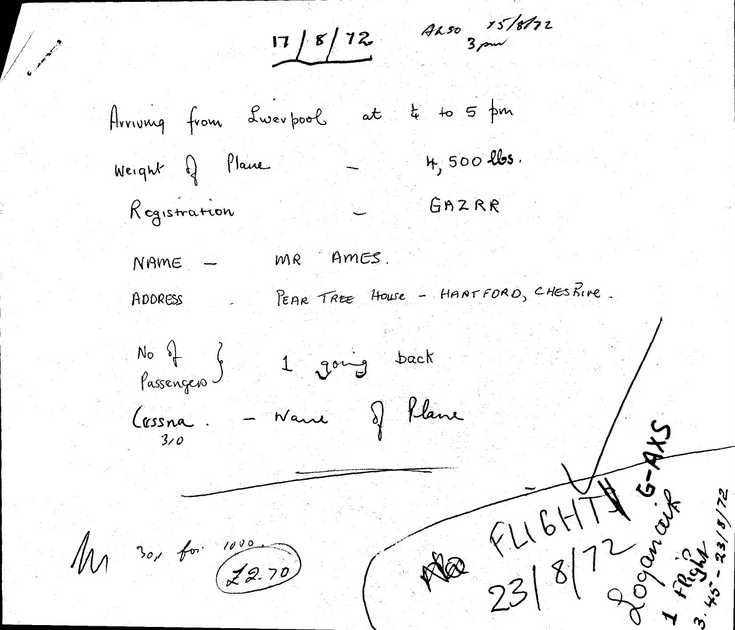 17/8/72
ALSO 15/8/72
3 pm
Arriving from Liverpool at 4 to 5 pm
Weight of Plane - 4,500 lbs.
Registration - GAZRR
NAME - MR AMES.
ADDRESS - PEAR TREE HOUSE - HARTFORD, CHESHIRE.
No of Passengers } 1 going back
Cessna. - Name of Plane
310
30p for 1000
£2.70
FLIGHT
23/8/72
G-AXS
Loganair
1 Flight
3.45 - 23/8/72